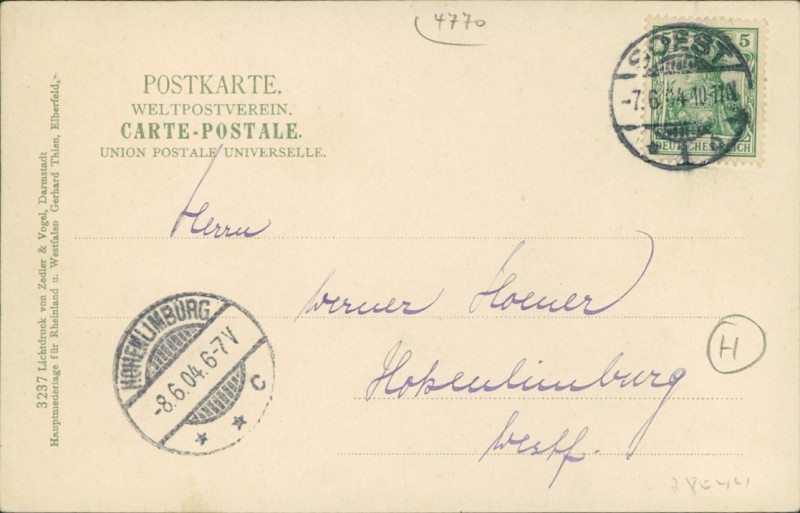 4770
5 5
DEUTSCHES REICH
SOEST
-7.6.04.10-11V
* 1 b
POSTKARTE.
WELTPOSTVEREIN.
CARTE-POSTALE.
UNION POSTALE UNIVERSELLE.
Herrn
Werner Hoener
Hohenlimburg
Westf.
H
HOHENLIMBURG
-8.6.04.6-7V
* * C
3237 Lichtdruck von Zedler & Vogel, Darmstadt
Hauptniederlage für Rheinland u. Westfalen Gerhard Thien, Elberfeld.